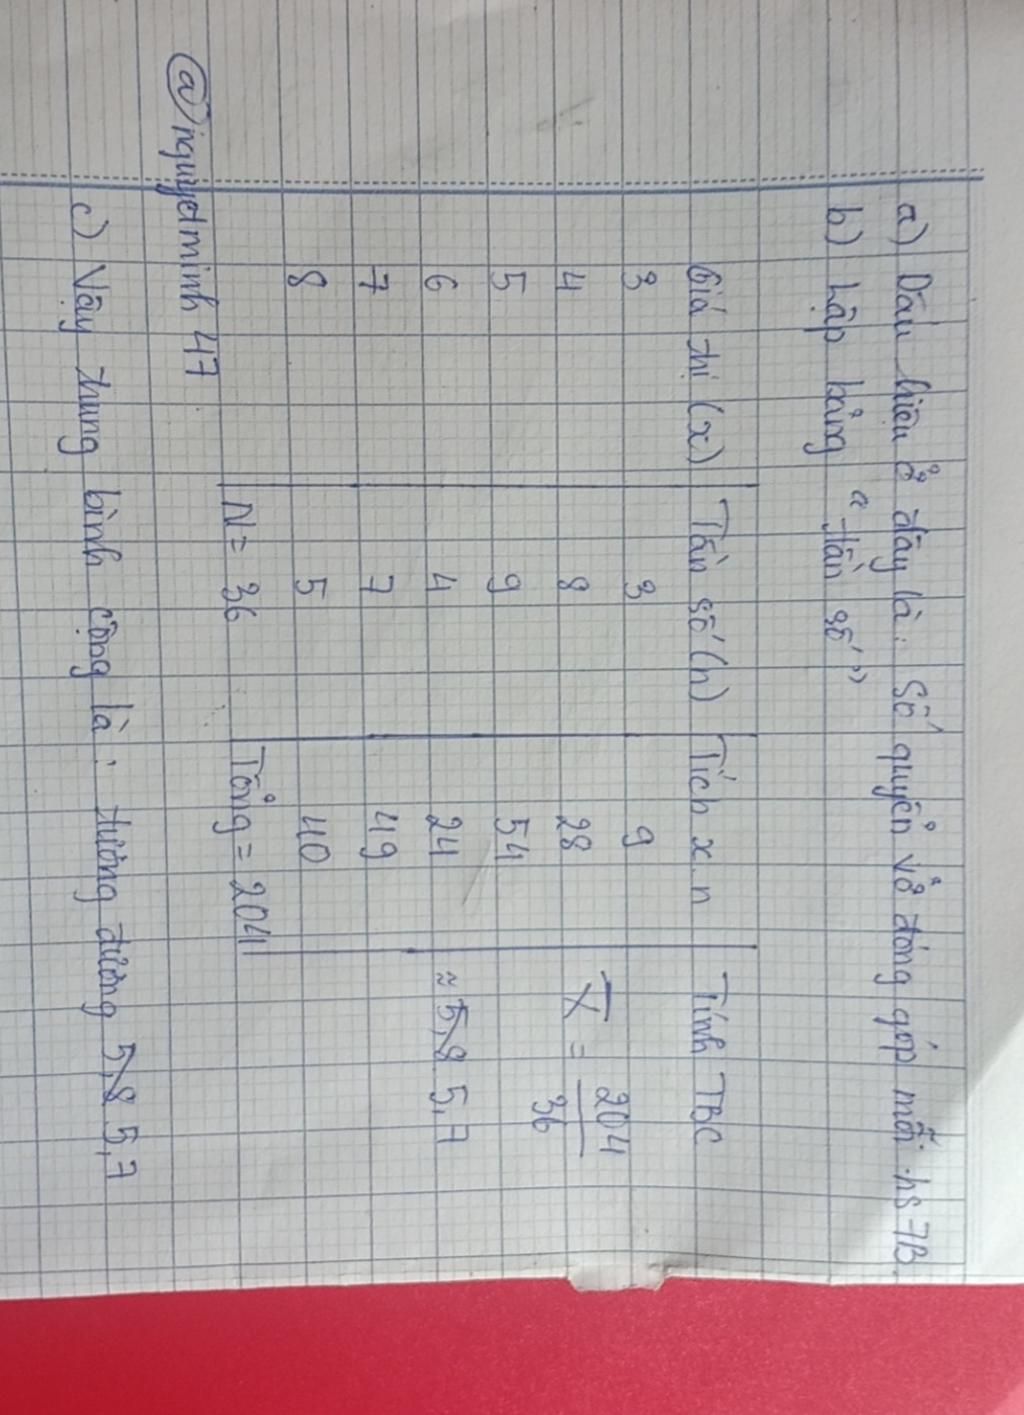 a) Dấu hiệu ở đây là: Số quyển vở đóng góp mỗi hs 7B
b) Lập bảng "tần số"
Giá trị (x) Tần số (n) Tích x.n Tính TBC
3 3 9
4 8 28 X̅ = 204/36
5 9 54
6 4 24 ≈ 5,8 5,7
7 7 49
8 5 40
N = 36 Tổng = 204
@nguyetminh 47
c) Vậy trung bình cộng là: tương đương 5,8 5,7